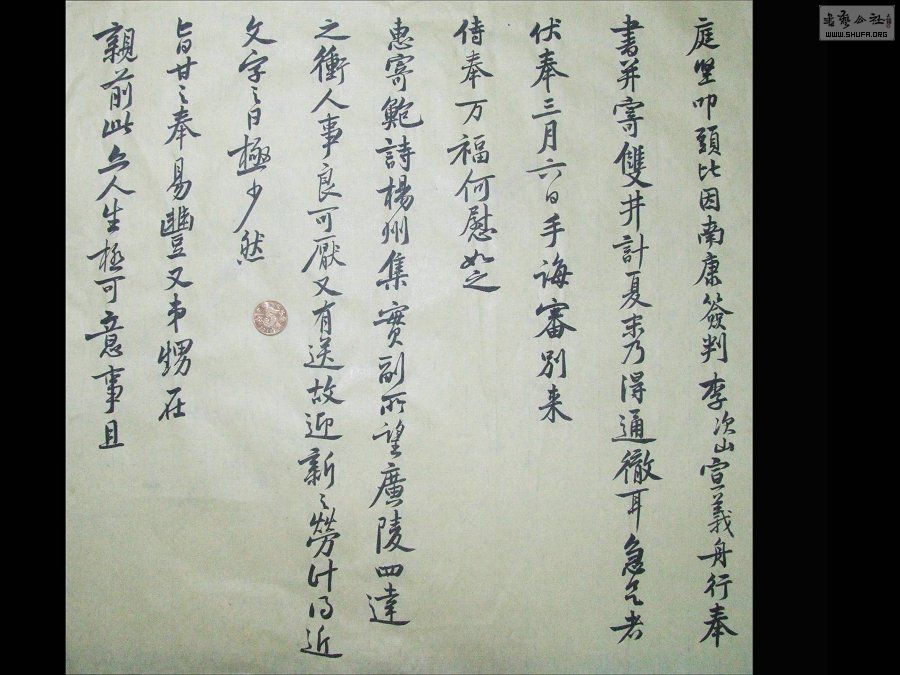 庭堅叩頭比因南康簽判李次山宣義舟行奉
書并寄雙井計夏末乃得通徹耳急足者
伏奉三月六日手誨審別来
侍奉万福何慰如之
惠寄鮑詩楊州集實副所望廣陵四達
之衝人事良可厭又有送故迎新之勞計得近
文字之日極少然
旨甘之奉易豐又弟甥在
親前此亦人生極可意事且
書藝公社
WWW.SHUFA.ORG